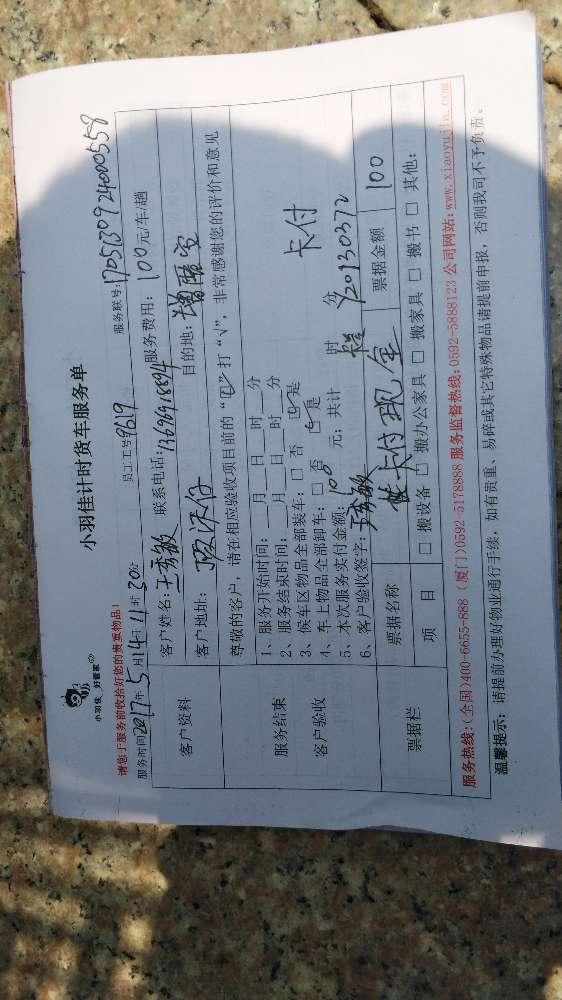 小羽佳 好管家
小羽佳计时货车服务单
请您于服务前收拾好您的贵重物品!
服务时间2017年5月14日11时30分 员工工号9619 服务联号:
客户资料
客户姓名:王秀敏 联系电话: 服务费用:100元/车/趟
客户地址: 目的地:
服务结束
客户验收
尊敬的客户,请在相应验收项目前的“□”打“√”,非常感谢您的评价和意见
1、服务开始时间:____月____日____时____分
2、服务结束时间:____月____日____时____分
3、候车区物品全部装车:□ 否 □ 是
4、车上物品全部卸车:□ 否 □ 是
5、本次服务实付金额:100 元;共计 时 分 卡付
6、客户验收签字:王秀敏 Y20130372
票据栏
票据名称 卡付现金 票据金额 100
项 目 □ 搬设备 □ 搬办公家具 □ 搬家具 □ 搬书 □ 其他:
服务热线:(全国)400-6655-888 (厦门)0592-5178888 服务监督热线:0592-5888123 公司网站:www.xiaoyujia.com
温馨提示:请提前办理好物业通行手续,如有贵重、易碎或其它特殊物品请提前申报,否则我司不予负责。